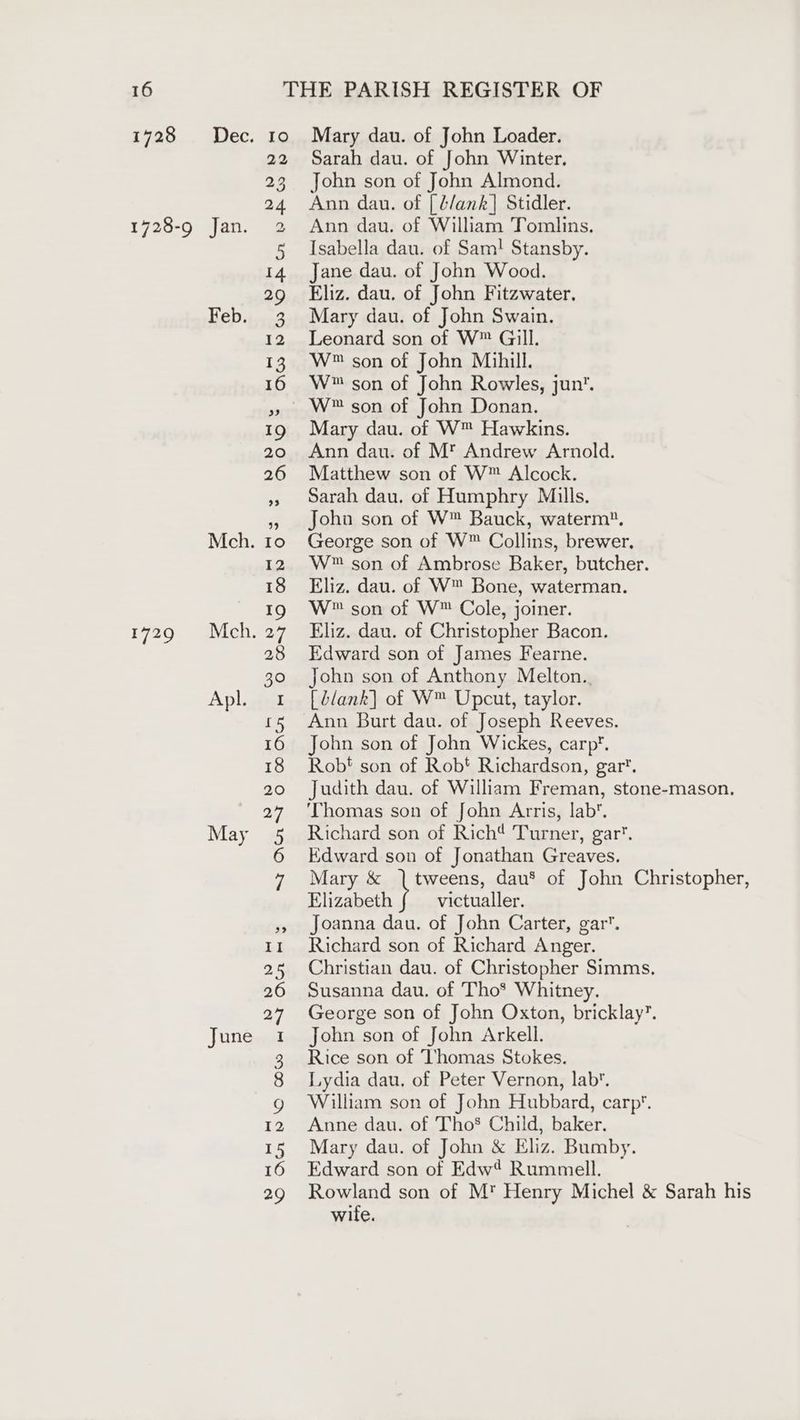 16 THE PARISH REGISTER OF
1728 Dec. 10 Mary dau. of John Loader.
22 Sarah dau. of John Winter.
23 John son of John Almond.
24 Ann dau. of [blank] Stidler.
1728-9 Jan. 2 Ann dau. of William Tomlins.
5 Isabella dau. of Samˡ Stansby.
14 Jane dau. of John Wood.
29 Eliz. dau. of John Fitzwater.
Feb. 3 Mary dau. of John Swain.
12 Leonard son of Wᵐ Gill.
13 Wᵐ son of John Mihill.
16 Wᵐ son of John Rowles, junʳ.
,, Wᵐ son of John Donan.
19 Mary dau. of Wᵐ Hawkins.
20 Ann dau. of Mʳ Andrew Arnold.
26 Matthew son of Wᵐ Alcock.
,, Sarah dau. of Humphry Mills.
,, John son of Wᵐ Bauck, watermⁿ.
Mch. 10 George son of Wᵐ Collins, brewer.
12 Wᵐ son of Ambrose Baker, butcher.
18 Eliz. dau. of Wᵐ Bone, waterman.
19 Wᵐ son of Wᵐ Cole, joiner.
1729 Mch. 27 Eliz. dau. of Christopher Bacon.
28 Edward son of James Fearne.
30 John son of Anthony Melton.
Apl. 1 [blank] of Wᵐ Upcut, taylor.
15 Ann Burt dau. of Joseph Reeves.
16 John son of John Wickes, carpʳ.
18 Robᵗ son of Robᵗ Richardson, garʳ.
20 Judith dau. of William Freman, stone-mason.
27 Thomas son of John Arris, labʳ.
May 5 Richard son of Richᵈ Turner, garʳ.
6 Edward son of Jonathan Greaves.
7 Mary & } tweens, dauˢ of John Christopher,
Elizabeth } victualler.
,, Joanna dau. of John Carter, garʳ.
11 Richard son of Richard Anger.
25 Christian dau. of Christopher Simms.
26 Susanna dau. of Thoˢ Whitney.
27 George son of John Oxton, bricklayʳ.
June 1 John son of John Arkell.
3 Rice son of Thomas Stokes.
8 Lydia dau. of Peter Vernon, labʳ.
9 William son of John Hubbard, carpʳ.
12 Anne dau. of Thoˢ Child, baker.
15 Mary dau. of John & Eliz. Bumby.
16 Edward son of Edwᵈ Rummell.
29 Rowland son of Mʳ Henry Michel & Sarah his
wife.